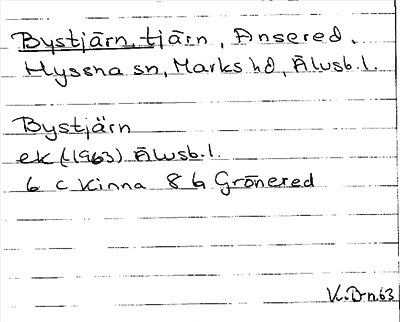 Bystjärn, tjärn, Ansered.
Hyssna sn, Marks hd, Älvsb. l.
Bystjärn
ek (-1963) Älvsb. l.
6 C Kinna 8 b Grönered
K.D-n.63